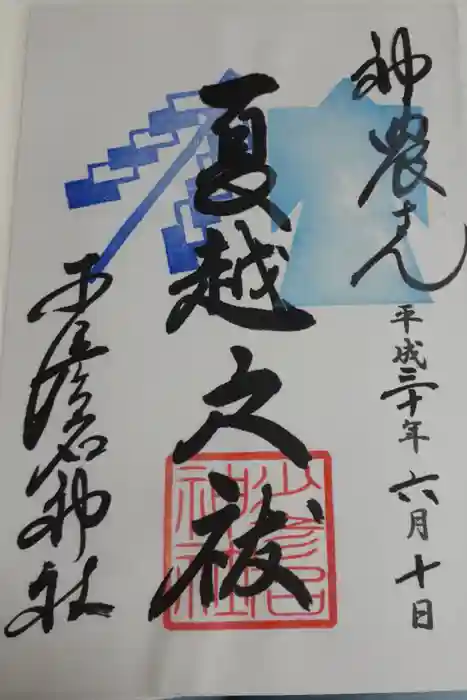 神農さん
平成三十年 六月 十日
夏越之祓
少彦名
神社
少彦名神社